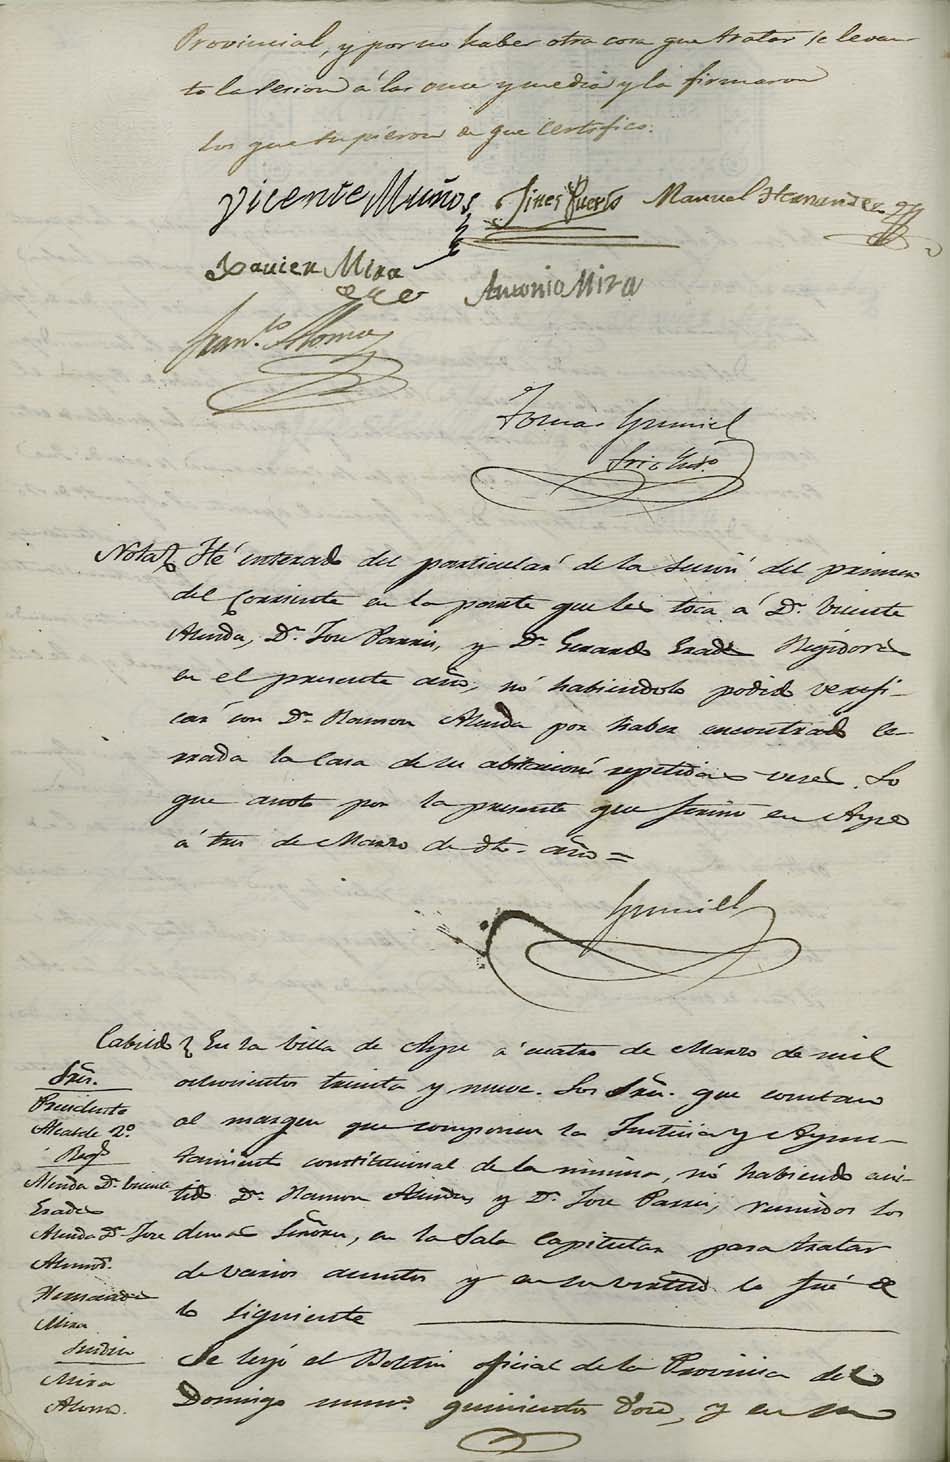 Provincial, y por no haber otra cosa que tratar se levan
to la sesion á las once y media y la firmaron
los que supieron de que certifico.
Vicente Muños Jines Puerto Manuel Hernandez
Xavier Mira
Antonio Mira
Fran.co Alonso
Tomas Gumiel
Srio
Nota Hé enterado del particular de la sesion del primero
del Corriente en la parte que les toca á Dn. Vicente
Alenda, Dn. Jose Parres, y Dn. Gerardo Erades Regidores
en el presente año, nó habiendolo podido verifi-
car con Dn. Ramon Alenda por haber encontrado ce-
rrada la Casa de su abitacion repetidas veces. Lo
que anoto por la presente que firmo en Aspe
á tres de Marzo de dho. año=
Gumiel
Cabildo En la Villa de Aspe á cuatro de Marzo de mil
ochocientos treinta y nueve. Los Sres. que constan
al margen que componen la Justicia y Ayun-
tamiento constitucional de la misma, nó habiendo asis-
tido Dn. Ramon Alenda y Dn. Jose Parres, reunidos los
demas Señores, en la Sala Capitular para tratar
de varios asuntos y en su virtud lo fué de
lo siguiente
Sres.
Presidente
Alcalde 2º.
Reg.s
Alenda Dn. Vicente
Erades
Alenda Dn. Jose
Almod.
Hernandez
Mira
Sindico
Mira
Alonso.
Se leyó el Boletin oficial de la Provincia del
Domingo num.º quinientos doce, y en su